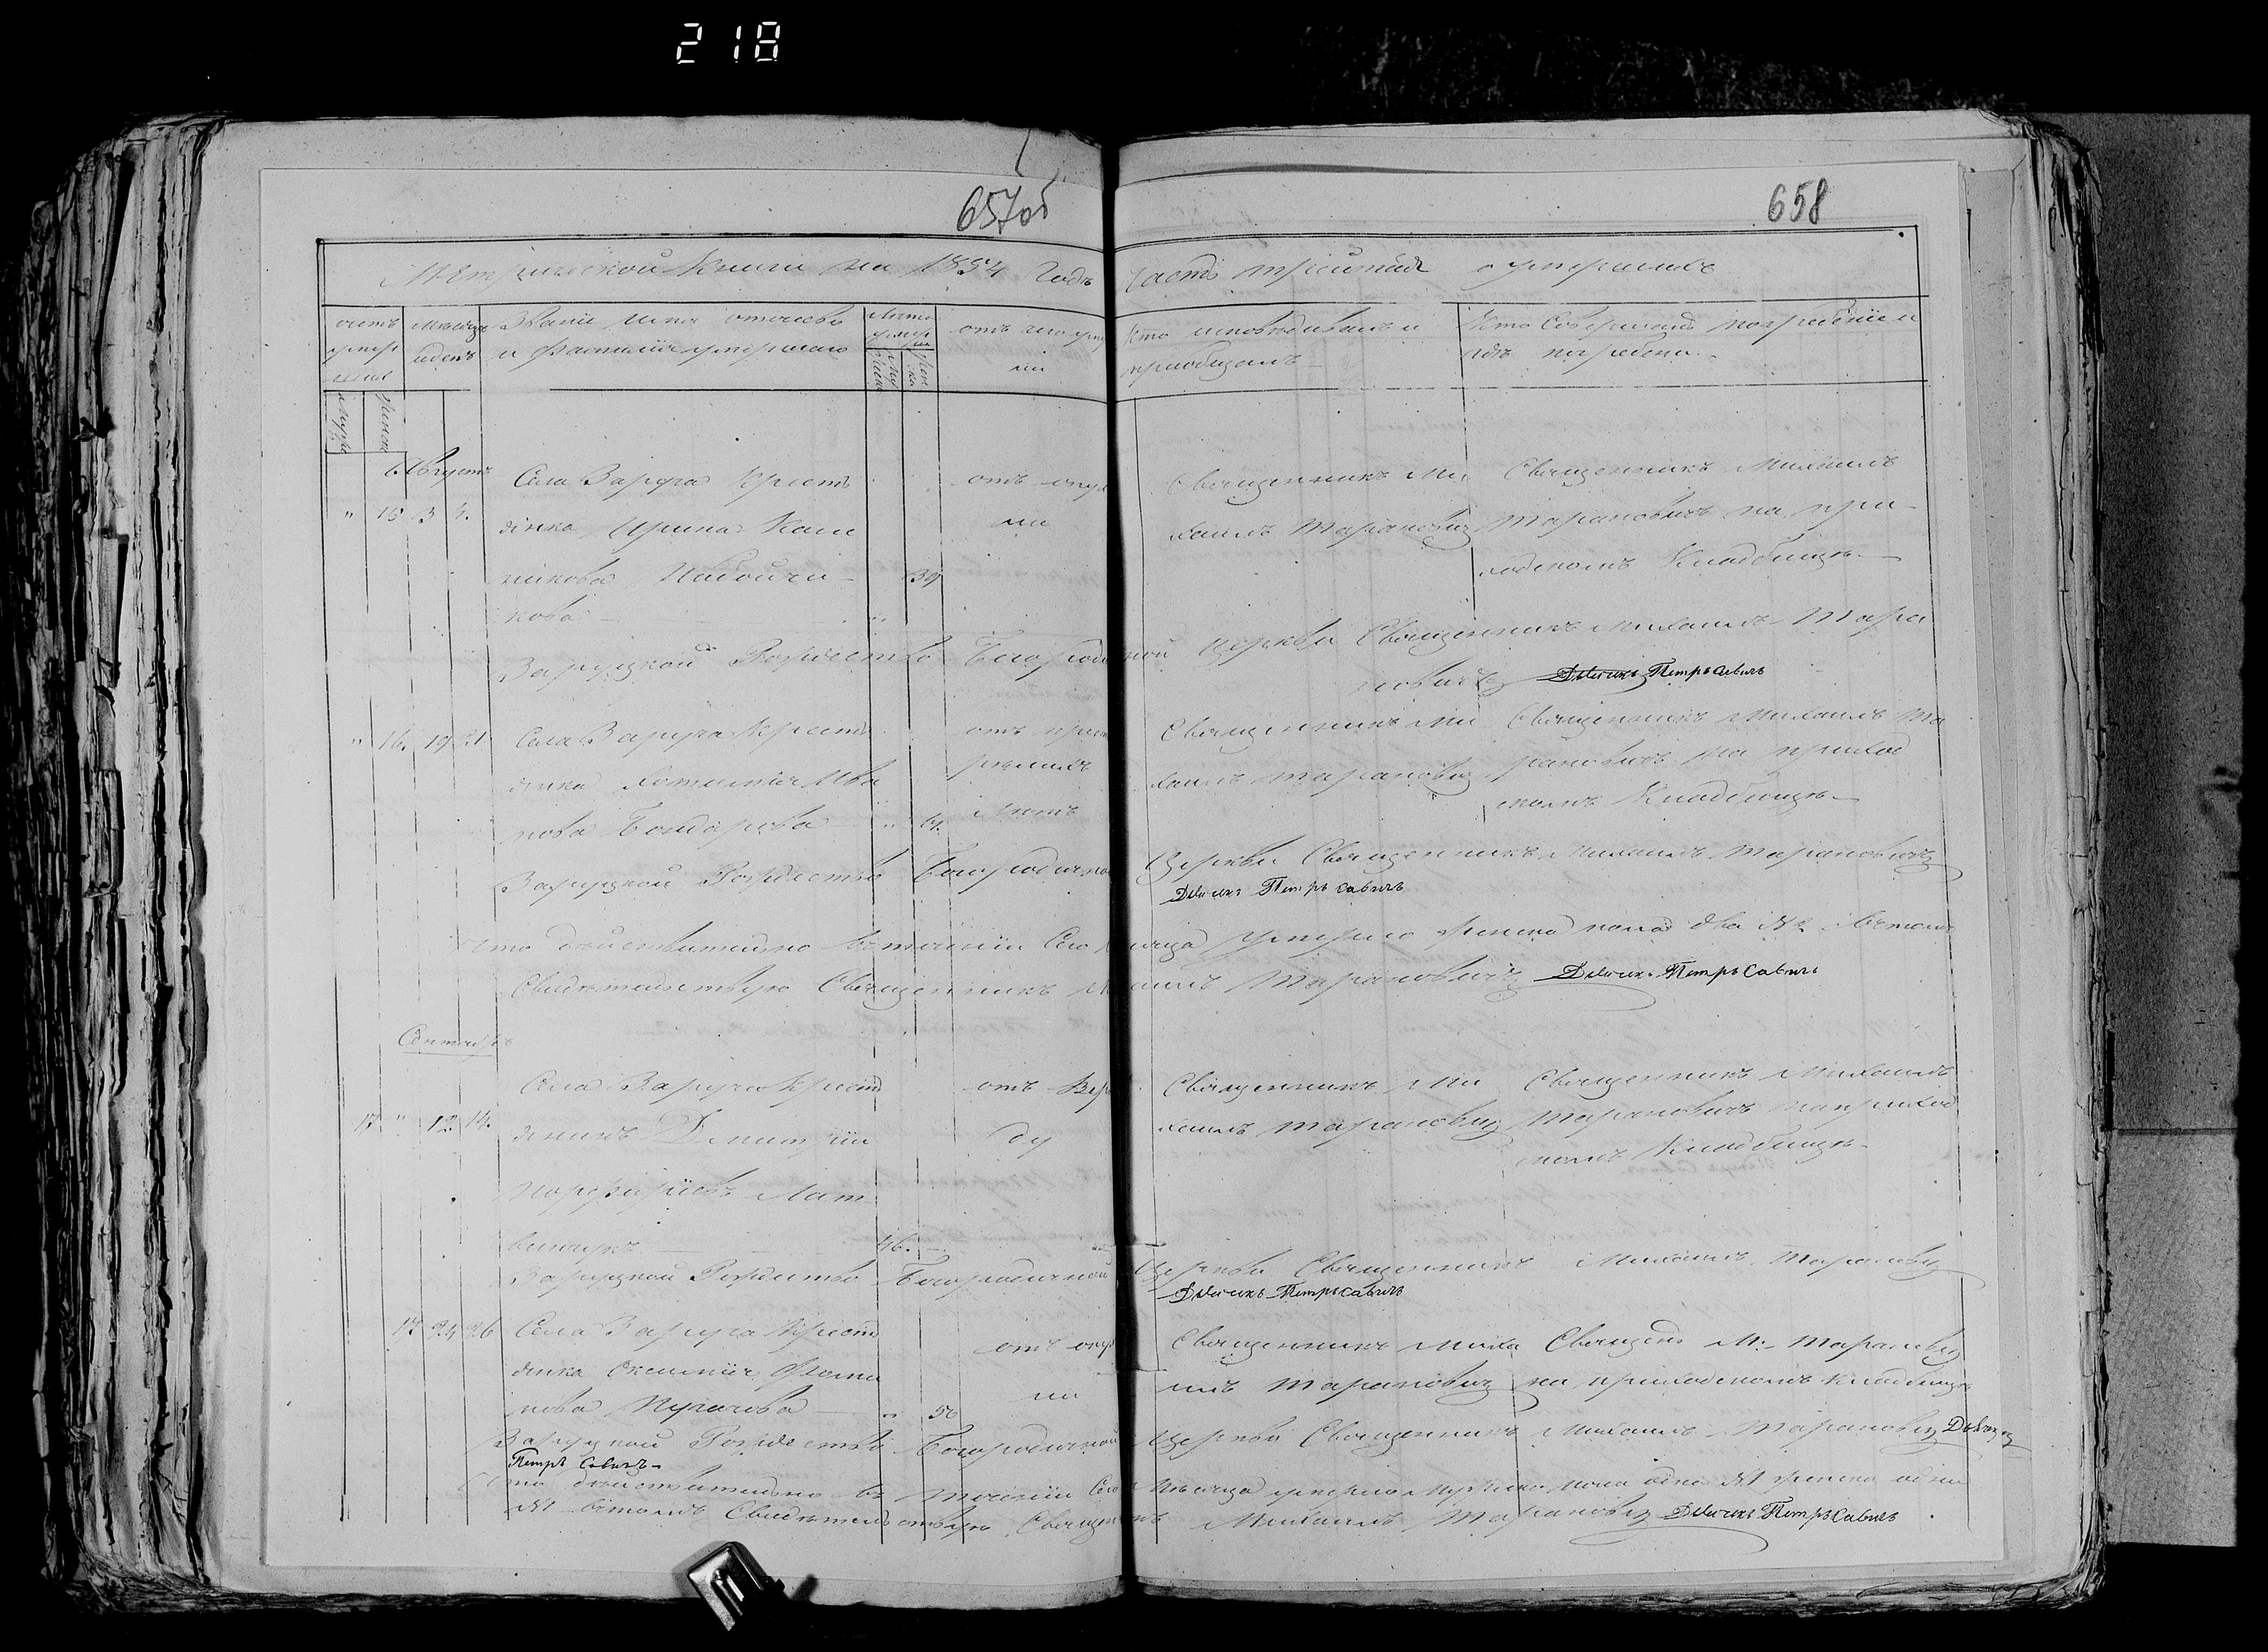 218
657об
658
Метрической Книги на 1854 Годъ Часть третья о умершихъ
счетъ умер шихъ
Мѣсяцъ и день
Званіе имя отчество и фамилія умершаго
Лѣта умер
от чего уме ли
Кто исповѣдывалъ и приобщалъ
Кто Совершалъ погребеніе и гдѣ погребены
Августъ
" 15 3 4.
Села Заруга Крестъ
янка Ирина Кали
никова
кова
39
отъ опух
ли
Священникъ Ми
хаилъ Тарановичъ
Священникъ Михаилъ
Тарановичъ на при
ходскомъ Кладбищѣ
Заруцкой Рождество Богородичной Церкви Священникъ Михаилъ Тара
новичъ Дьячекъ Петръ Савичъ
" 16. 19 21
Села Заруга Крестъ
янка Ива
нова Бондарова
" 61.
отъ прест
рѣлыхъ
Лѣтъ
Священникъ Ми
хаилъ Тарановичъ
Священникъ Михаилъ Та
рановичъ на приход
скомъ Кладбищѣ
Заруцкой Рождество Богородичной Церкви Священникъ Михаилъ Тарановичъ
Дьячекъ Петръ Савичъ
Что дѣйствительно въ теченіи Сего Мѣсяца умерло женска пола два №2 въ томъ
Свидѣтельствую Священникъ Михаилъ Тарановичъ Дьячекъ Петръ Савичъ
Сентябрь
17 " 12 14.
Села Заруга Крест
янинъ Димитрій
Порфиріевъ Лит
винчукъ
46.
отъ Вер
ду
Священникъ Ми
хаилъ Тарановичъ
Священникъ Михаилъ
Тарановичъ на приход
скомъ Кладбищѣ
Заруцкой Рождество Богородичной Церкви Священникъ Михаилъ Тарановичъ
Дьячекъ Петръ Савичъ
17 24 26
Села Заруга Крест
янка
нова Пугачова
" 50
отъ опух
ли
Священникъ Миха
илъ Тарановичъ
Священ М: Тарановичъ
на приходскомъ кладбищѣ
Заруцкой Рождество Богородичной Церкви Священникъ Михаилъ Тарановичъ Дьячекъ
Петръ Савичъ
Что дѣйствительно въ теченіи Сего Мѣсяца умерло Мужеска пола одна №1 женска одна
№1 въ томъ Свидѣтельствую Священникъ Михаилъ Тарановичъ Дьячекъ Петръ Савичъ